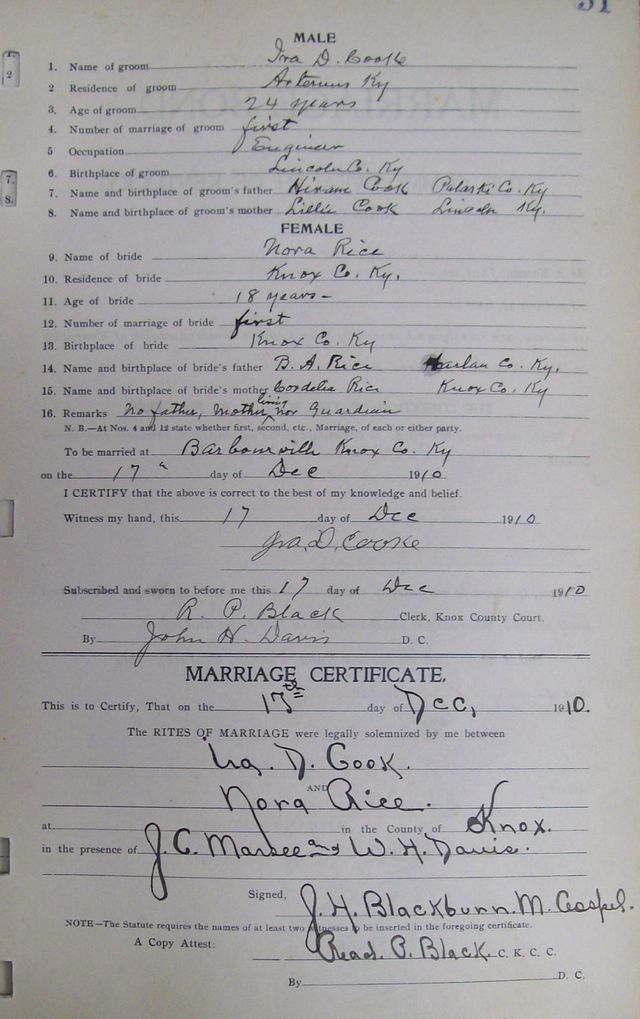 31
MALE
1. Name of groom Ira D. Cooke
2 Residence of groom Artemus Ky
3. Age of groom 24 years
4. Number of marriage of groom first
5 Occupation Engineer
6. Birthplace of groom Lincoln Co. Ky
7. Name and birthplace of groom's father Hiram Cook Pulaski Co. Ky
8. Name and birthplace of groom's mother Lillie Cook Lincoln Ky.
FEMALE
9. Name of bride Nora Rice
10. Residence of bride Knox Co. Ky.
11. Age of bride 18 years-
12. Number of marriage of bride first
13. Birthplace of bride Knox Co. Ky
14. Name and birthplace of bride's father B. A. Rice Harlan Co. Ky.
15. Name and birthplace of bride's mother Cordelia Rice Knox Co. Ky
16. Remarks No father, Mother living nor Guardian
N. B.—At Nos. 4 and 12 state whether first, second, etc., Marriage, of each or either party.
To be married at Barbourville Knox Co. Ky
on the 17 day of Dec 1910
I CERTIFY that the above is correct to the best of my knowledge and belief.
Witness my hand, this 17 day of Dec 1910
Ira, D, Cooke
Subscribed and sworn to before me this 17 day of Dec 1910
R. P. Black Clerk, Knox County Court.
By John H. Davis D. C.
MARRIAGE CERTIFICATE.
This is to Certify, That on the 17th day of Dec, 1910.
The RITES OF MARRIAGE were legally solemnized by me between
Ira. D. Cook.
AND
Nora Rice.
at in the County of Knox.
in the presence of J. C. Marsee and W. H. Davis.
Signed, J. H. Blackburn. M. Gospel.
NOTE—The Statute requires the names of at least two witnesses to be inserted in the foregoing certificate.
A Copy Attest: Read. P. Black. C. K. C. C.
By D. C.
1.
2
7.
8.